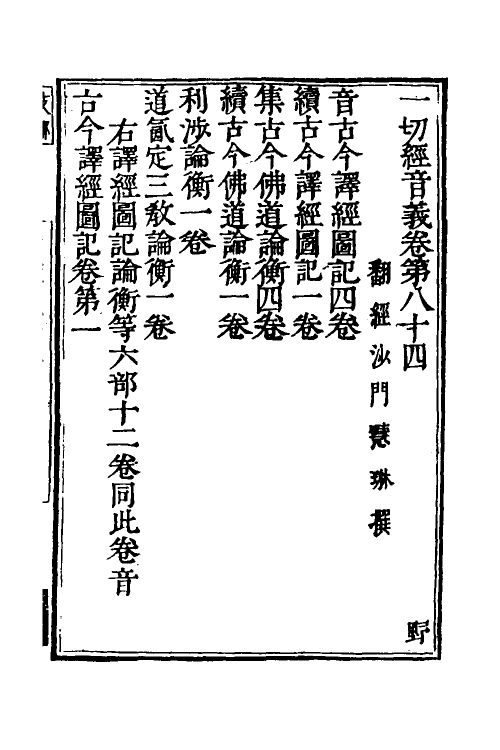 一切經音義卷第八十四　野
翻經沙門慧琳撰
音古今譯經圖記四卷
續古今譯經圖記一卷
集古今佛道論衡四卷
續古今佛道論衡一卷
利涉論衡一卷
道氤定三教論衡一卷
右譯經圖記論衡等六部十二卷同此卷音
古今譯經圖記卷第一